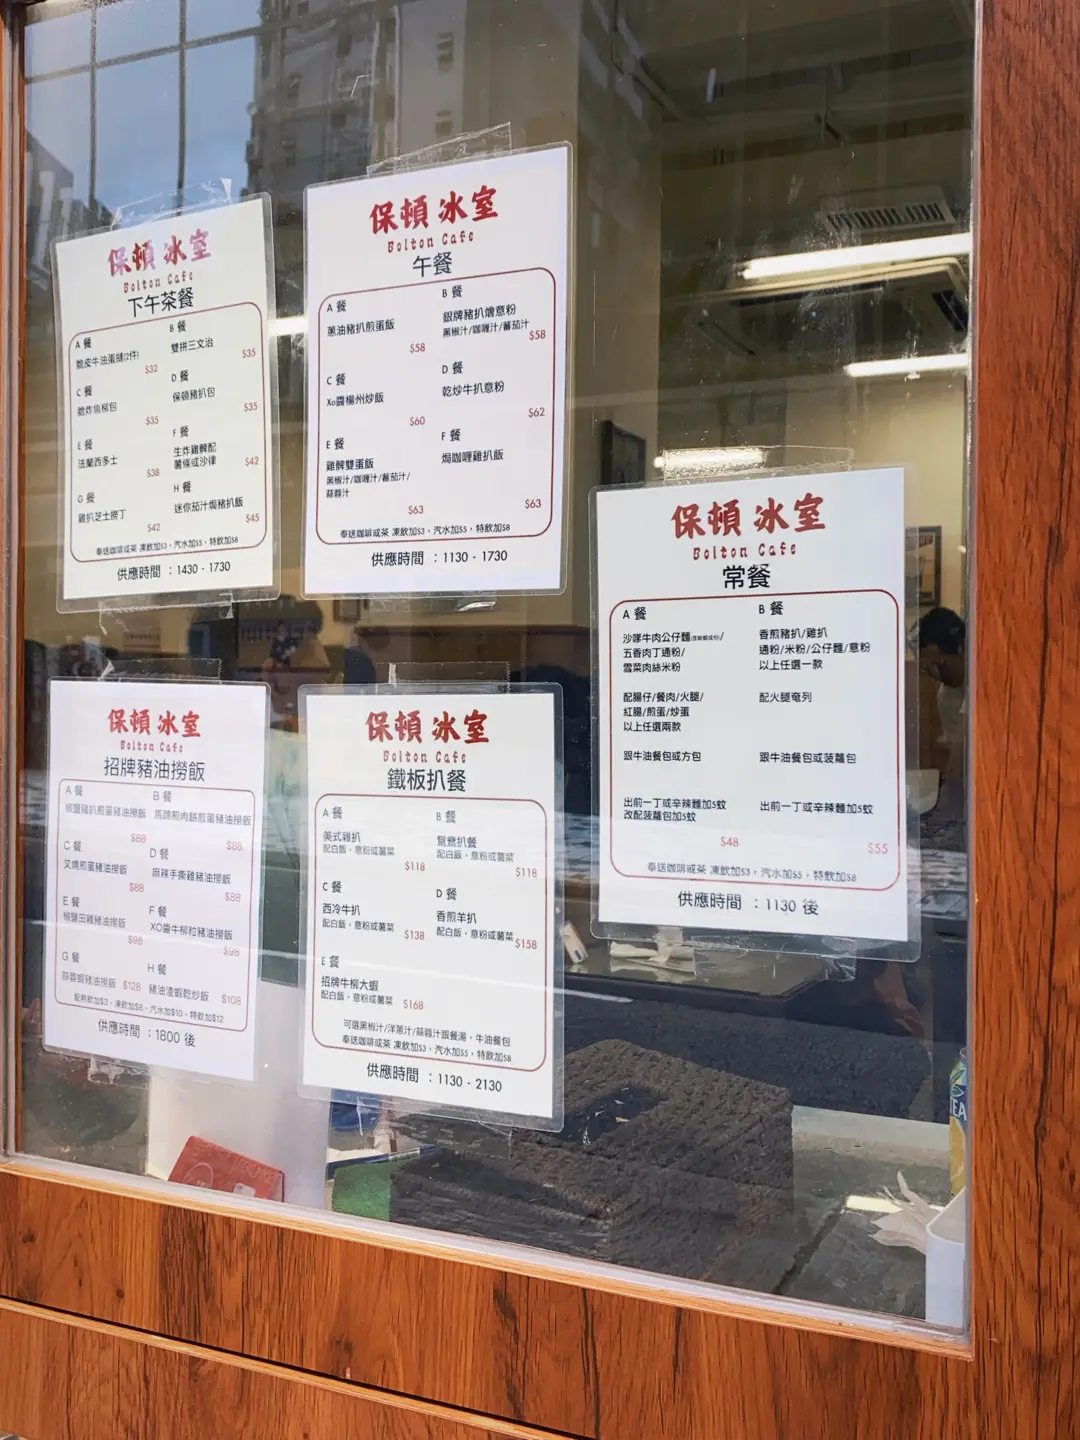 保頓冰室
Bolton Cafe
下午茶餐
A 餐
脆皮牛油蛋撻(2件)
$32
B 餐
雙拼三文治
$35
C 餐
脆炸魚柳包
$35
D 餐
保頓豬扒包
$35
E 餐
法蘭西多士
$38
F 餐
生炸雞髀配
薯條或沙律
$42
G 餐
雞扒芝士撈丁
$42
H 餐
迷你茄汁焗豬扒飯
$45
奉送咖啡或茶 凍飲加$3，汽水加$5，特飲加$8
供應時間 : 1430 - 1730
保頓冰室
Bolton Cafe
午餐
A 餐
蔥油豬扒煎蛋飯
$58
B 餐
銀牌豬扒燴意粉
黑椒汁/咖喱汁/蕃茄汁
$58
C 餐
Xo醬楊州炒飯
$60
D 餐
乾炒牛扒意粉
$62
E 餐
雞髀雙蛋飯
黑椒汁/咖喱汁/蕃茄汁/
蒜蓉汁
$63
F 餐
焗咖喱雞扒飯
$63
奉送咖啡或茶 凍飲加$3，汽水加$5，特飲加$8
供應時間 : 1130 - 1730
保頓冰室
Bolton Cafe
常餐
A 餐
沙嗲牛肉公仔麵/
五香肉丁通粉/
雪菜肉絲米粉
配腸仔/餐肉/火腿/
紅腸/煎蛋/炒蛋
以上任選兩款
跟牛油餐包或方包
出前一丁或辛辣麵加5蚊
改配菠蘿包加5蚊
$48
B 餐
香煎豬扒/雞扒
通粉/米粉/公仔麵/意粉
以上任選一款
配火腿奄列
跟牛油餐包或菠蘿包
出前一丁或辛辣麵加5蚊
$55
奉送咖啡或茶 凍飲加$3，汽水加$5，特飲加$8
供應時間 : 1130 後
保頓冰室
Bolton Cafe
招牌豬油撈飯
A 餐
椒鹽豬扒煎蛋豬油撈飯
$88
B 餐
馬蹄煎肉餅煎蛋豬油撈飯
$88
C 餐
叉燒煎蛋豬油撈飯
$88
D 餐
麻辣手撕雞豬油撈飯
$88
E 餐
椒鹽田雞豬油撈飯
$98
F 餐
XO醬牛柳粒豬油撈飯
$98
G 餐
蒜蓉蝦豬油撈飯 $128
H 餐
豬油渣蝦乾炒飯 $108
配熱飲加$3，凍飲加$6，汽水加$10，特飲加$12
供應時間 : 1800 後
保頓冰室
Bolton Cafe
鐵板扒餐
A 餐
美式雜扒
配白飯，意粉或薯菜
$118
B 餐
鴛鴦扒餐
配白飯，意粉或薯菜
$118
C 餐
西冷牛扒
配白飯，意粉或薯菜 $138
D 餐
香煎羊扒
配白飯，意粉或薯菜 $158
E 餐
招牌牛柳大蝦
配白飯，意粉或薯菜 $168
可選黑椒汁/洋蔥汁/蒜蓉汁跟餐湯，牛油餐包
奉送咖啡或茶 凍飲加$3，汽水加$5，特飲加$8
供應時間 : 1130 - 2130